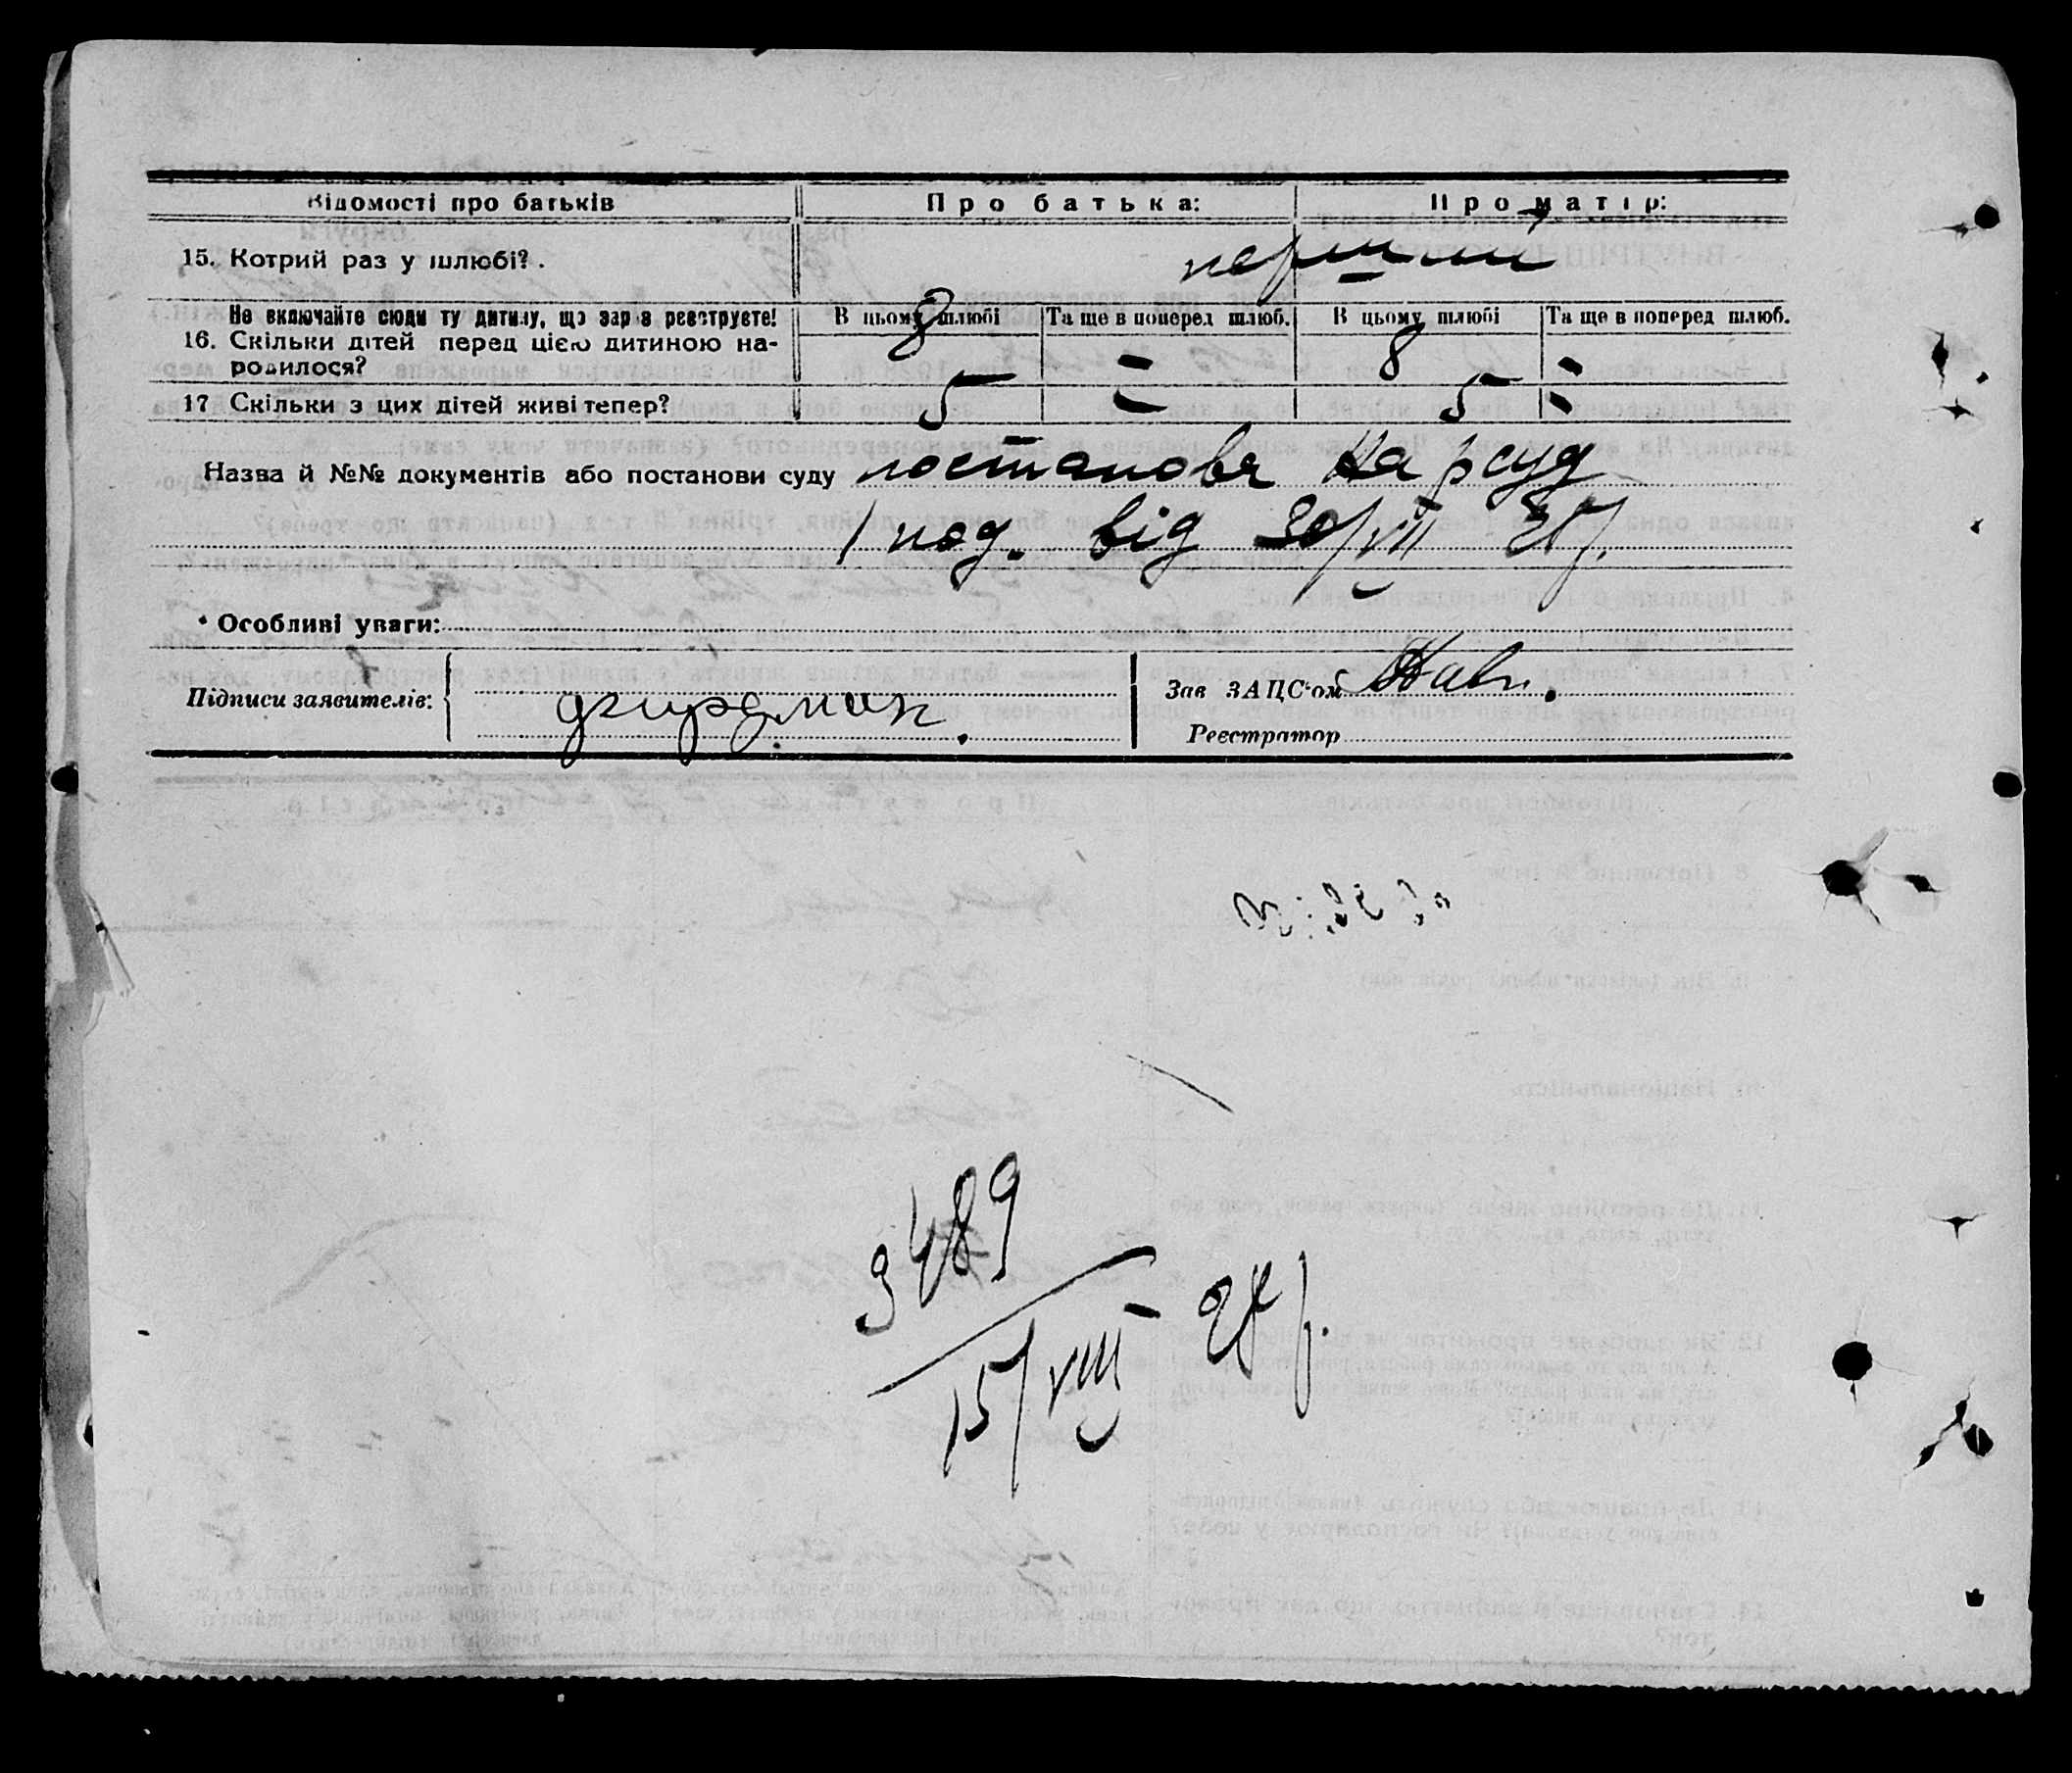 Відомості про батьків
Про батька:
Про матір:
15. Котрий раз у шлюбі?.
перший
Не включайте сюди ту дитину, що зараз реєструєте!
В цьому шлюбі
Та ще в поперед шлюб.
В цьому шлюбі
Та ще в поперед шлюб.
16. Скільки дітей перед цією дитиною на-
родилося?
8 = 8 =
17 Скільки з цих дітей живі тепер?
5 = 5 =
Назва й №№ документів або постанови суду постанова Нарсуд
від 30/VIII
Особливі уваги:
Підписи заявителів:
Зав ЗАЦС'ом
Реєстратор
3489
15/VIII 28 р.